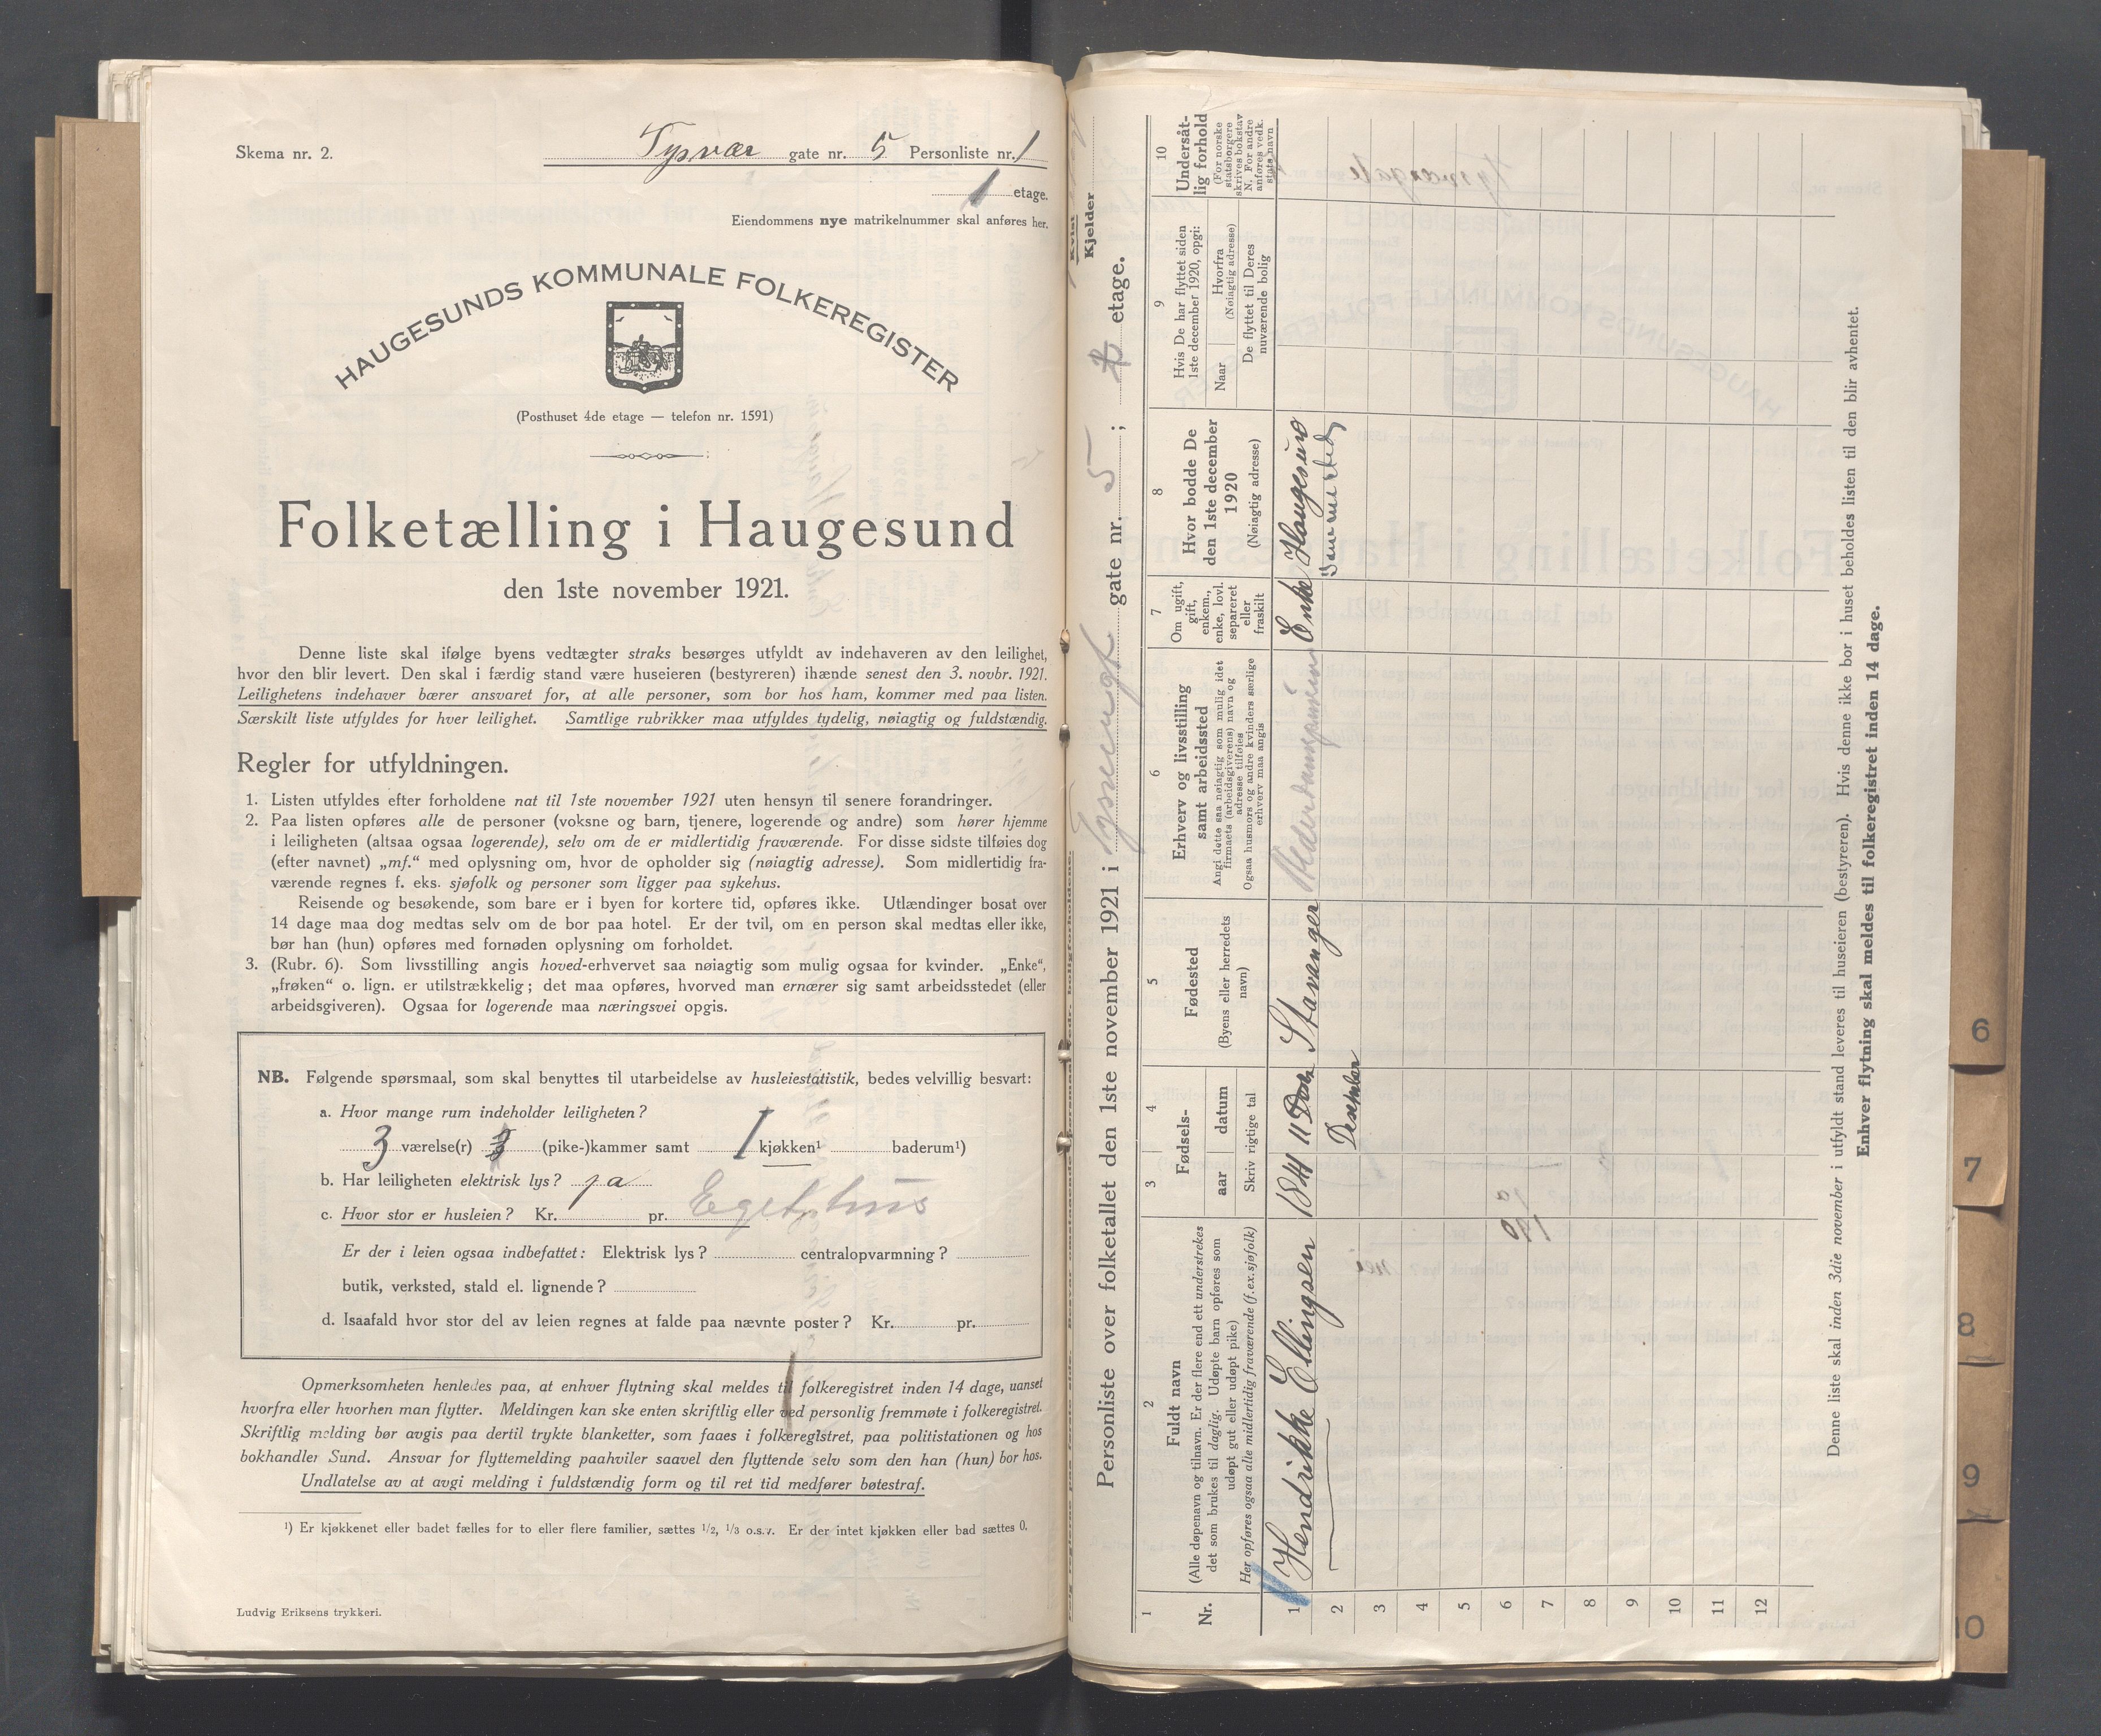 Skema nr. 2.
Tysvær gate nr. 5 Personliste nr. 1
1 etage.
Eiendommens nye matrikelnummer skal anføres her.
HAUGESUNDS KOMMUNALE FOLKEREGISTER
(Posthuset 4de etage — telefon nr. 1591)
Folketælling i Haugesund
den 1ste november 1921.
Denne liste skal ifølge byens vedtægter straks besørges utfyldt av indehaveren av den leilighet,
hvor den blir levert. Den skal i færdig stand være huseieren (bestyreren) ihænde senest den 3. novbr. 1921.
Leilighetens indehaver bærer ansvaret for, at alle personer, som bor hos ham, kommer med paa listen.
Særskilt liste utfyldes for hver leilighet. Samtlige rubrikker maa utfyldes tydelig, nøiagtig og fuldstændig.
Regler for utfyldningen.
1. Listen utfyldes efter forholdene nat til 1ste november 1921 uten hensyn til senere forandringer.
2. Paa listen opføres alle de personer (voksne og barn, tjenere, logerende og andre) som hører hjemme
i leiligheten (altsaa ogsaa logerende), selv om de er midlertidig fraværende. For disse sidste tilføies dog
(efter navnet) „mf.“ med oplysning om, hvor de opholder sig (nøiagtig adresse). Som midlertidig fra-
værende regnes f. eks. sjøfolk og personer som ligger paa sykehus.
Reisende og besøkende, som bare er i byen for kortere tid, opføres ikke. Utlændinger bosat over
14 dage maa dog medtas selv om de bor paa hotel. Er der tvil, om en person skal medtas eller ikke,
bør han (hun) opføres med fornøden oplysning om forholdet.
3. (Rubr. 6). Som livsstilling angis hoved-erhvervet saa nøiagtig som mulig ogsaa for kvinder. „Enke“,
„frøken“ o. lign. er utilstrækkelig; det maa opføres, hvorved man ernærer sig samt arbeidsstedet (eller
arbeidsgiveren). Ogsaa for logerende maa næringsvei opgis.
NB. Følgende spørsmaal, som skal benyttes til utarbeidelse av husleiestatistik, bedes velvillig besvart:
a. Hvor mange rum indeholder leiligheten?
3 værelse(r) (pike-)kammer samt 1 kjøkken¹ baderum¹)
b. Har leiligheten elektrisk lys? ja
c. Hvor stor er husleien? Kr. pr. Eget hus
Er der i leien ogsaa indbefattet: Elektrisk lys? centralopvarmning?
butik, verksted, stald el. lignende?
d. Isaafald hvor stor del av leien regnes at falde paa nævnte poster? Kr. pr.
Opmerksomheten henledes paa, at enhver flytning skal meldes til folkeregistret inden 14 dage, uanset
hvorfra eller hvorhen man flytter. Meldingen kan ske enten skriftlig eller ved personlig fremmøte i folkeregistret.
Skriftlig melding bør avgis paa dertil trykte blanketter, som faaes i folkeregistret, paa politistationen og hos
bokhandler Sund. Ansvar for flyttemelding paahviler saavel den flyttende selv som den han (hun) bor hos.
Undlatelse av at avgi melding i fuldstændig form og til ret tid medfører bøtestraf.
¹) Er kjøkkenet eller badet fælles for to eller flere familier, sættes 1/2, 1/3 o.s.v. Er der intet kjøkken eller bad sættes 0.
Ludvig Eriksens trykkeri.
Kvist
Kjelder
Personliste over folketallet den 1ste november 1921 i gate nr. 5; etage.
1 2 3 4 5 6 7 8 9 10
Nr.
Fuldt navn
(Alle døpenavn og tilnavn. Er der flere end ett understrekes
det som brukes til daglig. Udøpte barn opføres som
udøpt gut eller udøpt pike)
Her opføres ogsaa alle midlertidig fraværende (f.ex.sjøfolk)
Fødsels-
aar datum
Skriv rigtige tal
Fødested
(Byens eller herredets
navn)
Erhverv og livsstilling
samt arbeidssted
Angi dette saa nøiagtig som mulig idet
firmaets (arbeidsgiverens) navn og
adresse tilføies
Ogsaa husmors og andre kvinders særlige
erhverv maa angis
Om ugift,
gift,
enkem.,
enke, lovl.
separeret
eller
fraskilt
Hvor bodde De
den 1ste december
1920
(Nøiagtig adresse)
Hvis De har flyttet siden
1ste december 1920, opgi:
Naar
Hvorfra
(Nøiagtig adresse)
De flyttet til Deres
nuværende bolig
Undersåt-
lig forhold
(For norske
statsborgere
skrives bokstav
N. For andre
anføres vedk.
stats navn
1 Hendrikke Ellingsen 1841 11 Stavanger Enke Haugesund
2 Desember
3
4
5
6
7
8
9
10
11
12
Denne liste skal inden 3die november i utfyldt stand leveres til huseieren (bestyreren). Hvis denne ikke bor i huset beholdes listen til den blir avhentet.
Enhver flytning skal meldes til folkeregistret inden 14 dage.
6
7
8
9
10